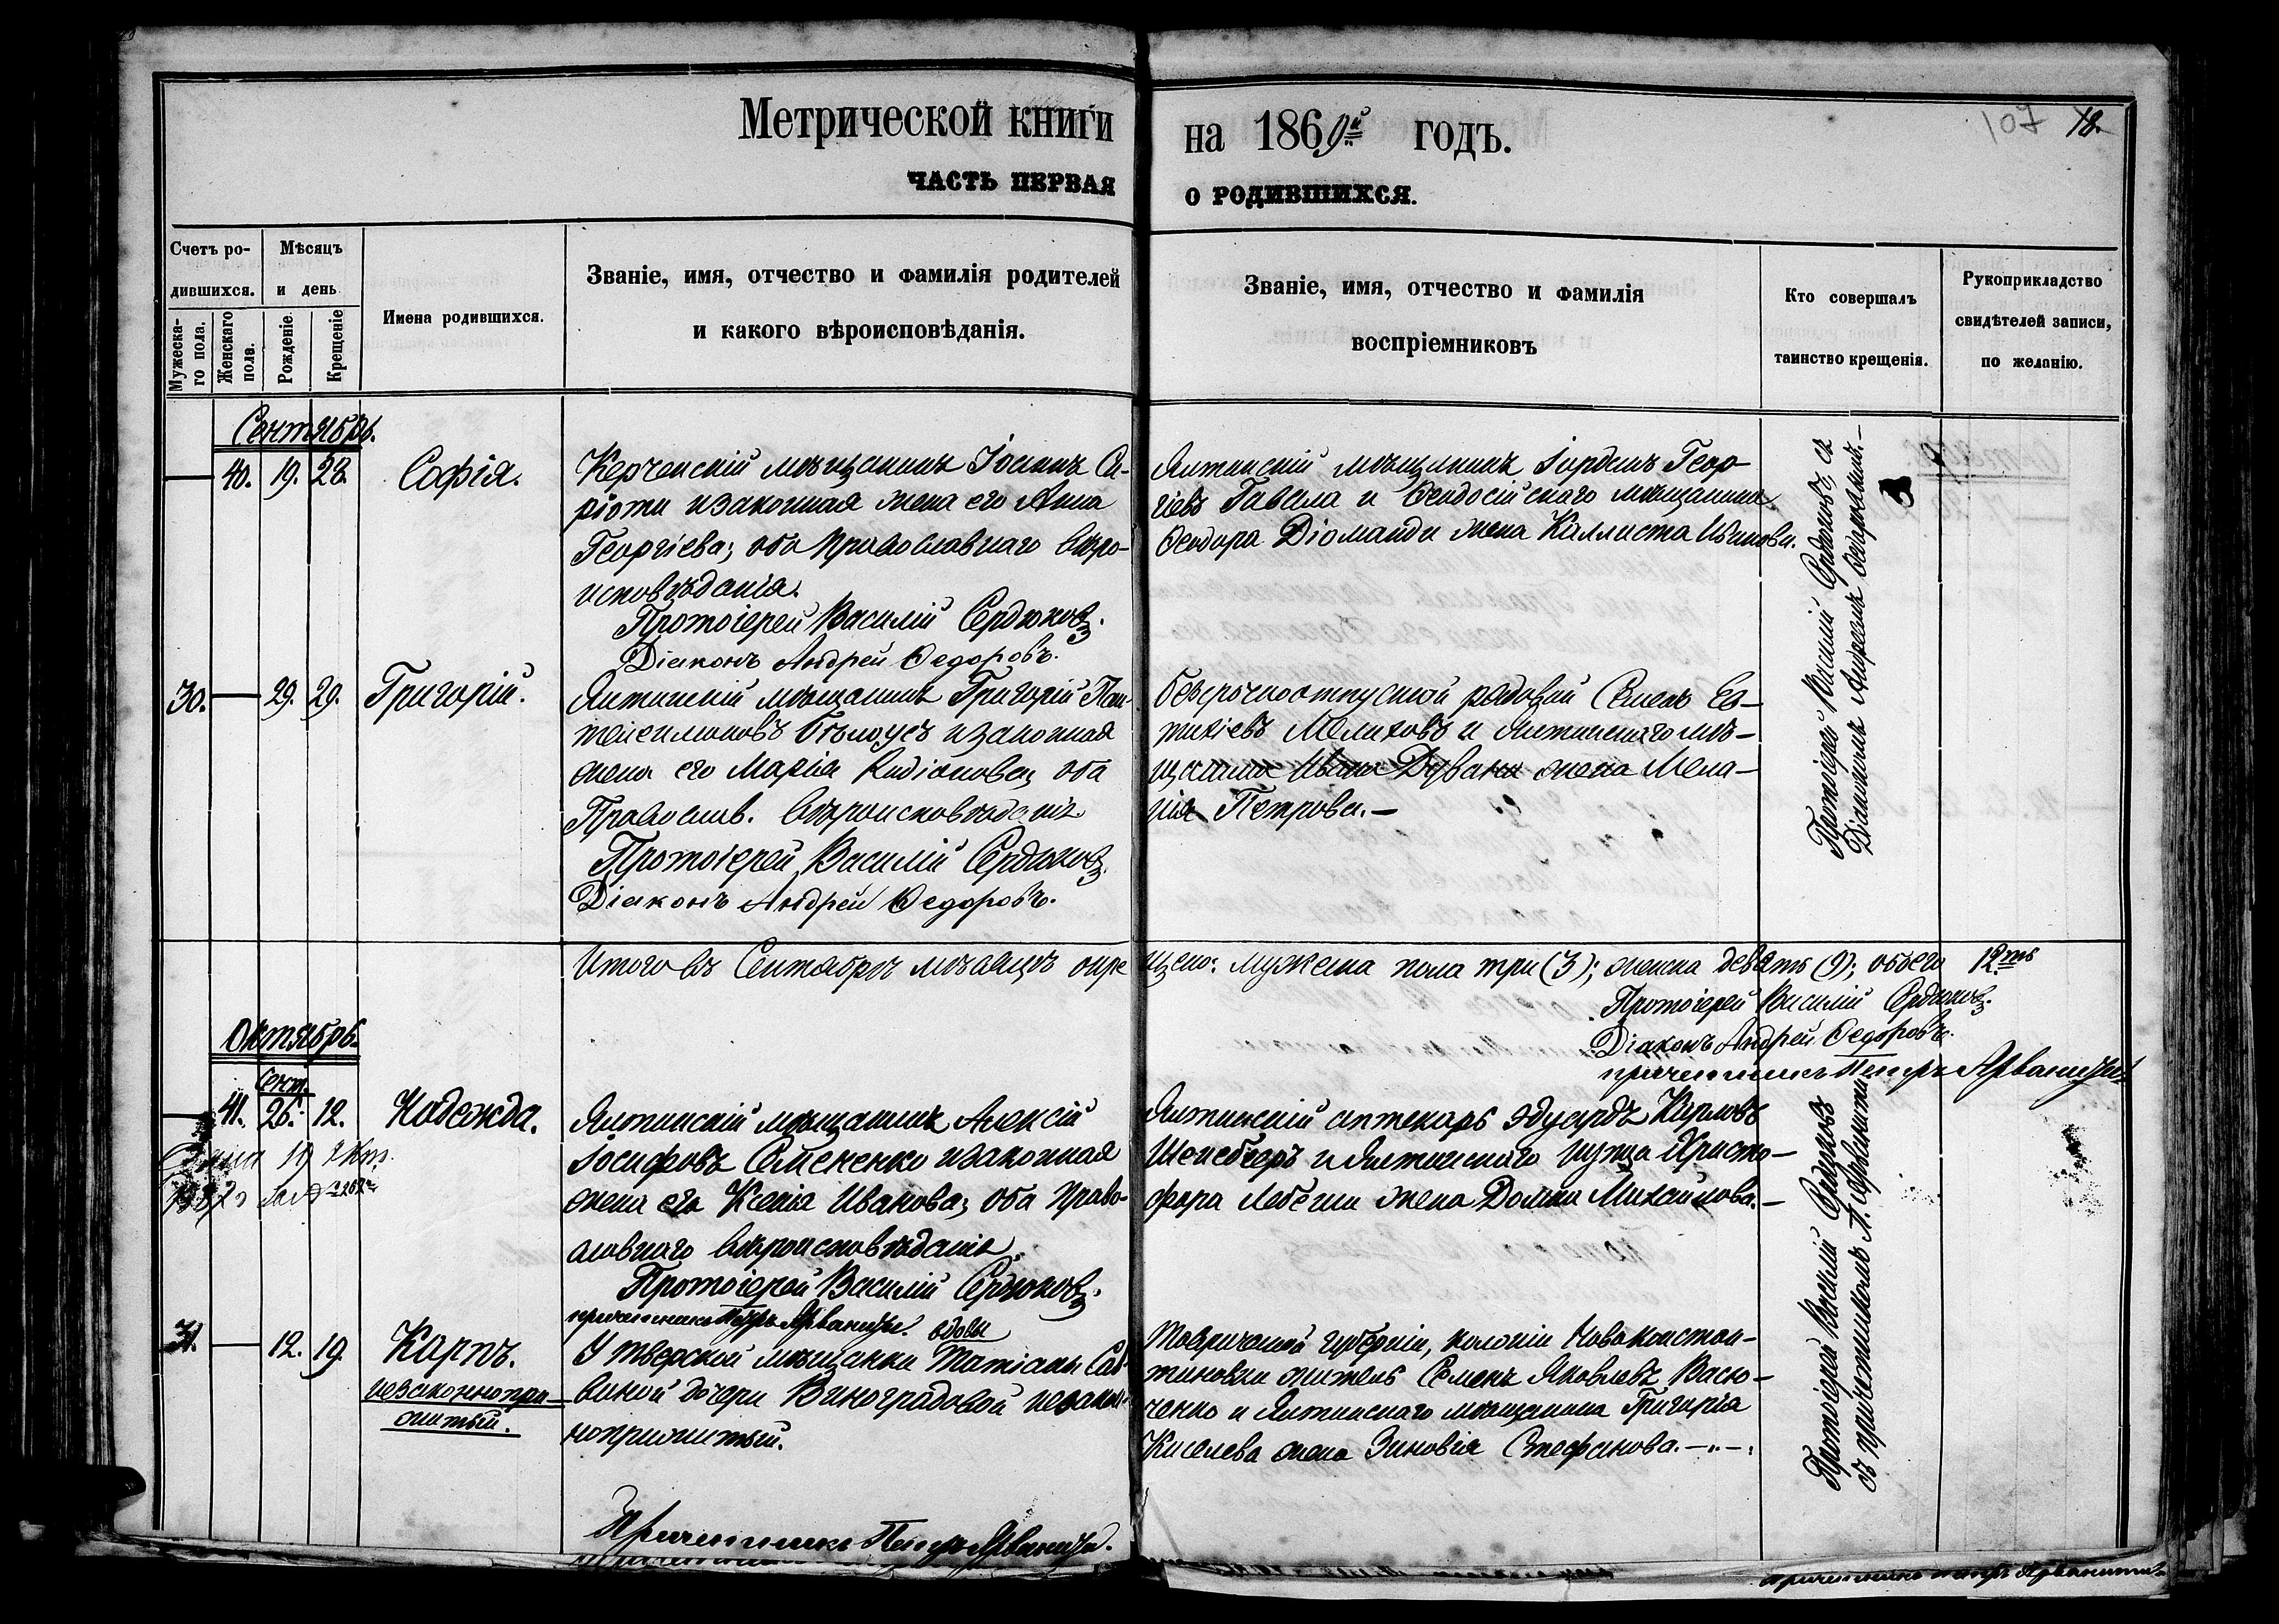 Метрической книги на 1869й годъ.
107 18.
ЧАСТЬ ПЕРВАЯ О РОДИВШИХСЯ.
Счетъ родившихся.
Мужескаго пола.
Женскаго пола.
Мѣсяцъ и день
Рожденіе.
Крещеніе
Имена родившихся.
Званіе, имя, отчество и фамилія родителей
и какого вѣроисповѣданія.
Званіе, имя, отчество и фамилія
воспріемниковъ
Кто совершалъ
таинство крещенія.
Рукоприкладство
свидѣтелей записи,
по желанію.
Сентябрь.
40. 19. 28. Софія.
Керченскій мѣщанинъ Іоаннъ Си-
ріоти и законная жена его Анна
Георгіева; оба православнаго вѣро-
исповѣданія.
Протоіерей Василій Сердюковъ.
Діаконъ Андрей Ѳедоровъ.
Ялтинскій мѣщанинъ Іорданъ Геор-
гіевъ Гавала и Ѳеодосійскаго мѣщанина
Ѳеодора Діоманди жена Каллиста Иванова.
Протоіерей Василій Сердюковъ, съ
Діакономъ Андреемъ Ѳедоровымъ.—
30. 29. 29. Григорій.
Ялтинскій мѣщанинъ Григорій Пан-
телеимоновъ Бѣлоусъ и законная
жена его Марія оба
Православ. вѣроисповѣданія
Протоіерей Василій Сердюковъ.
Діаконъ Андрей Ѳедоровъ.
безсрочноотпускной рядовой Семенъ Ев-
тихіевъ Мелиховъ и Ялтинскаго мѣ-
щанина Ивана Дувана жена Мела-
нія Петрова.—
Итого въ Сентябрѣ мѣсяцѣ окрещено: мужеска пола три (3); женска девять (9); обоего 12ть
Протоіерей Василій Сердюковъ.
Діаконъ Андрей Ѳедоровъ.
причетникъ Петръ Арванити
Октябрь.
Сент.
41. 26. 12. Надежда.
Ялтинскій мѣщанинъ Алексій
Іосифовъ Семененко и законная
жена его Ксенія Иванова; оба право-
славнаго вѣроисповѣданія.
Протоіерей Василій Сердюковъ.
причетникъ Петръ Арванити.
Ялтинскій аптекарь Эдуардъ Карловъ
и Ялтинскаго купца Христо-
фора жена Домна Михайлова.—
Протоіерей Василій Сердюковъ
съ причетникомъ П. Арванити
31. 12. 19. Карпъ.
незаконнопри-
житый.
вдовы
У тверской мѣщанки Татіаны Сав-
виной дочери Виноградовой незакон-
ноприжитый.
Причетникъ Петръ Арванити.
Таврической губерніи, колоніи Новоконстан-
тиновки житель Семенъ Яковлевъ Васю-
ченко и Ялтинскаго мѣщанина Григорія
Киселева жена Зиновія Стефанова.
причетникъ Петръ Арванити